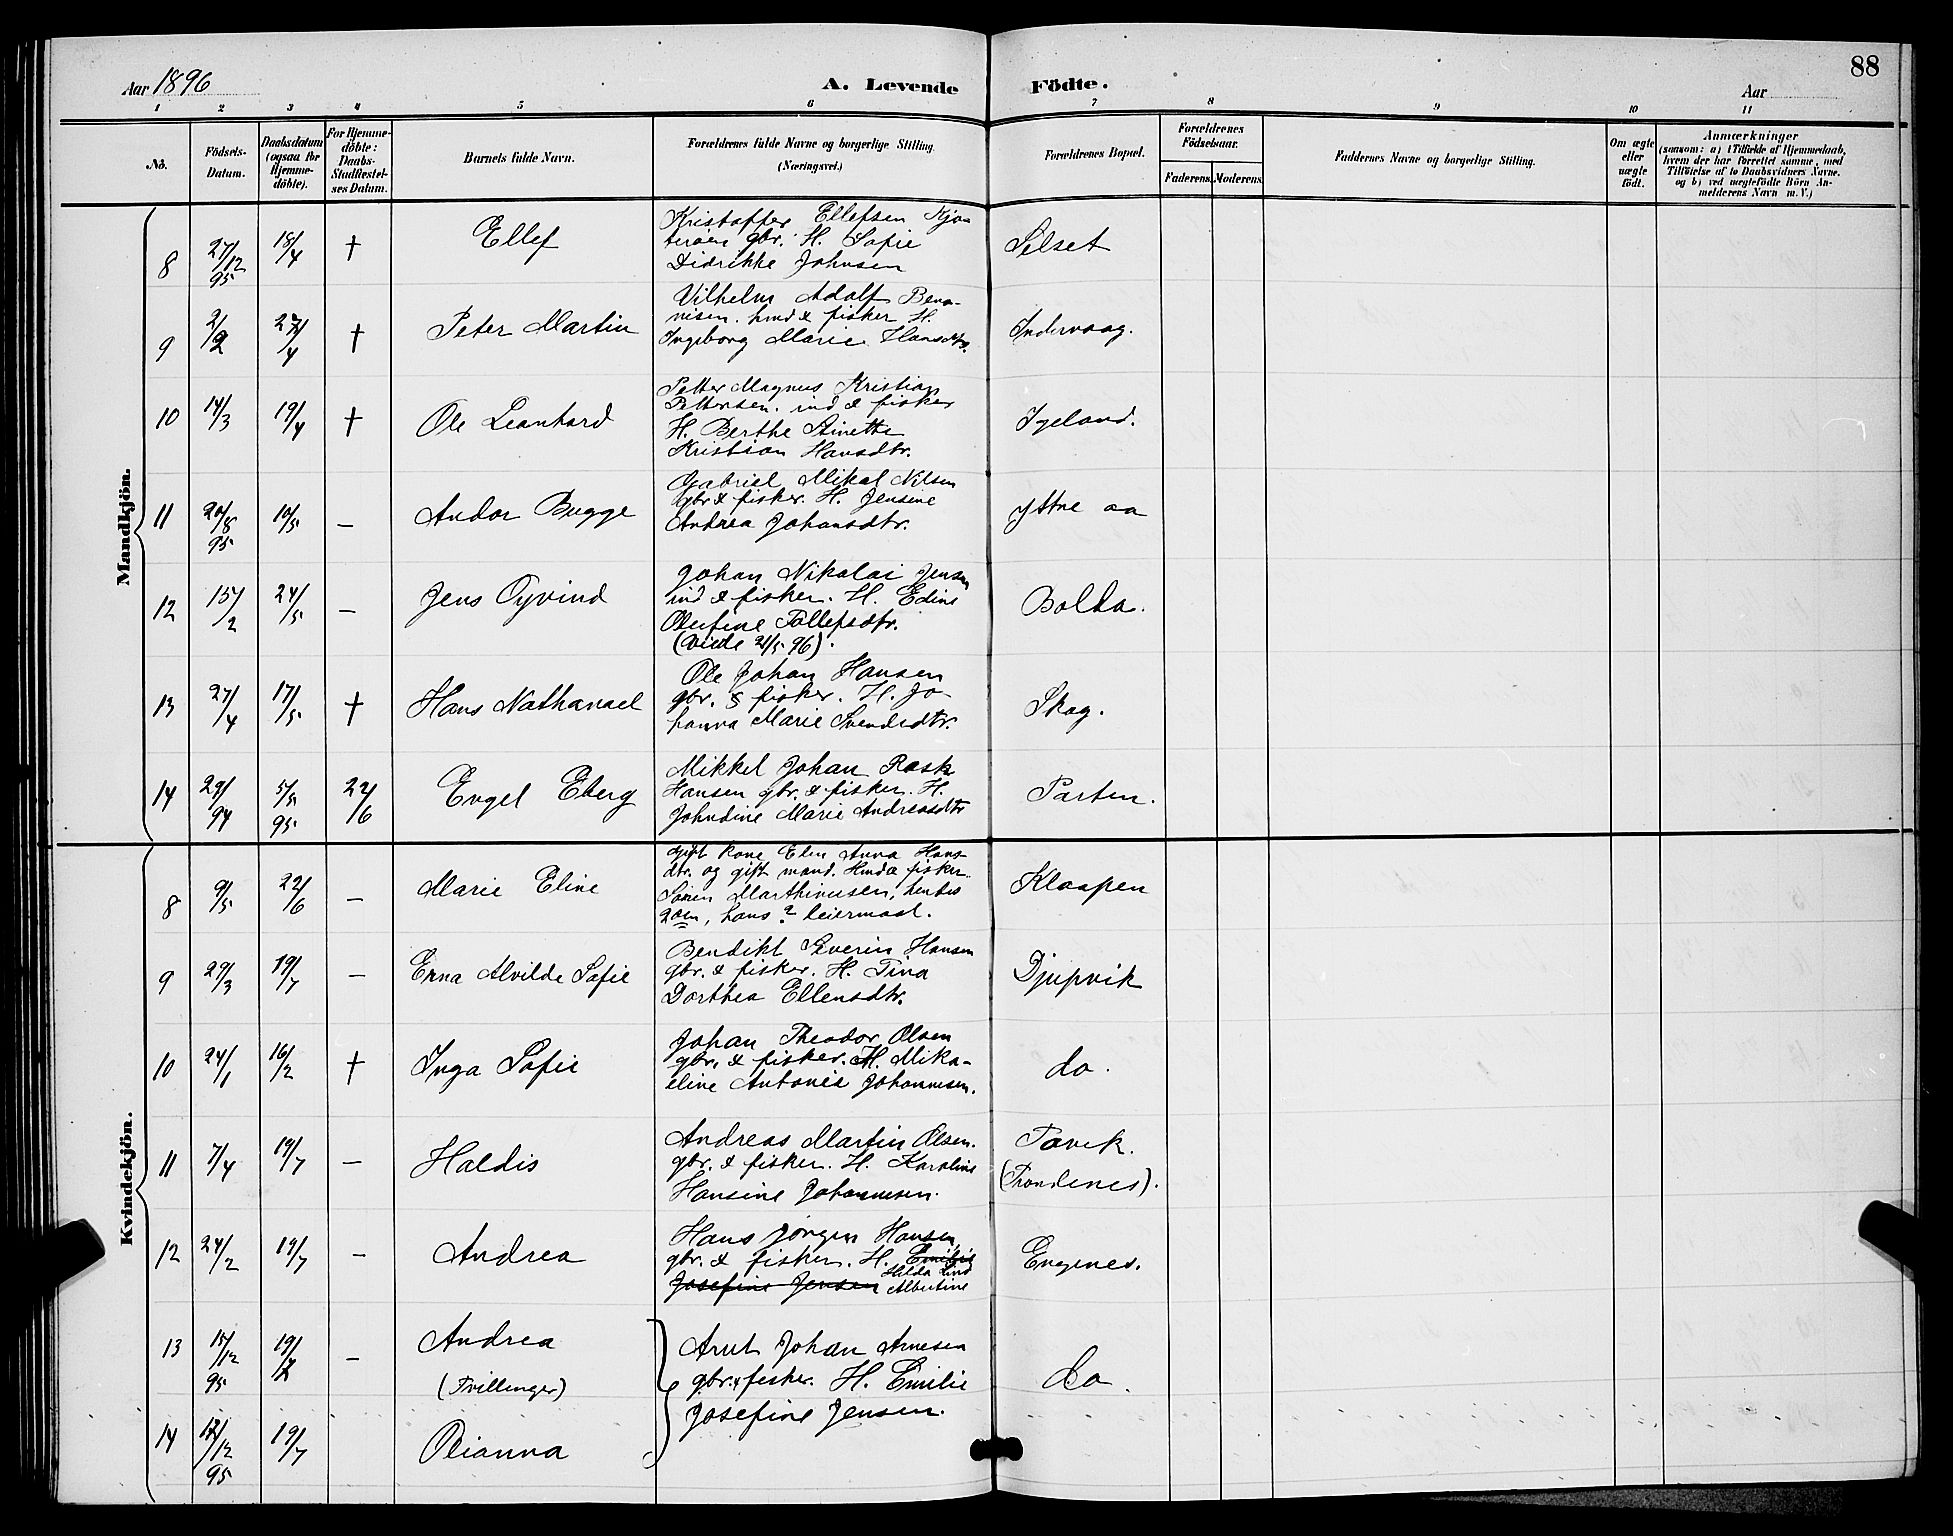 Aar 1896
A. Levende
Födte.
Aar
88
1 2 3 4 5 6 7 8 9 10 11
No.
Födsels-Datum.
Daabsdatum (ogsaa for Hjemme-döbte).
For Hjemme-döbte: Daabs-Stadfæstel-ses Datum.
Barnets fulde Navn.
Forældrenes fulde Navne og borgerlige Stilling. (Næringsvei.)
Forældrenes Bopæl.
Forældrenes Födselsaar.
Faderens. Moderens.
Faddernes Navne og borgerlige Stilling.
Om ægte eller uægte födt.
Anmærkninger
(saasom: a) i Tilfælde af Hjemmedaab,
hvem der har forrettet samme, med
Tilföielse af to Daabsvidners Navne,
og b) ved uægtefödte Börn An-
melderens Navn m. V.)
Mandkjön.
8 27/12 95 18/4 † Ellef
Kristoffer Ellefsen Kjø-
terøen gbr. H. Sofie
Didrikke Johnsen
Selset
9 2/2 27/4 † Peter Martin
Vilhelm Adolf Bena-
nisen. hmd & fisker H.
Ingeborg Marie Hansdtr.
Indervaag.
10 14/3 19/4 † Ole Leonhard
Petter Magnus Kristian
Pettersen. ind & fisker
H. Berthe Stinette
Kristian Hansdtr.
Igeland.
11 20/8 95 10/5 – Andor Bugge
Gabriel Mikal Nilsen
gbr & fisker. H. Jensine
Andrea Johansdtr.
Yttre aa
12 15/2 24/5 – Jens Oyvind
Johan Nikolai Jensen
ind & fisker. H. Edine
Olufine Tollefsdtr.
(viede 21/5 96).
Bolda.
13 27/4 17/5 † Hans Nathanael
Ole Johan Hansen
gbr. & fisker. H. Jo-
hanna Marie Svendsdtr.
Skog.
14 29/ 94 5/5 95 22/6 Engel Eberg
Mikkel Johan Rask
Hansen gbr. & fisker. H.
Johndine Marie Andreasdtr
Parten.
Kvindekjön.
8 9/5 22/6 – Marie Eline
gift kone Elen Anna Hans-
dtr. og gift mand. Hmd & fisker
Sören Marthinusen, hendes
2den, hans ? leiermaal.
Klaapen
9 29/3 19/7 – Erna Alvilde Sofie
Bendikt Severin Hansen
gbr. & fisker. H. Tina
Dorthea Ellensdtr.
Djupvik
10 24/1 16/2 † Inga Sofie
Johan Theodor Olsen
gbr. & fisker. H. Mika-
eline Antonie Johannesen.
do.
11 7/4 19/7 – Haldis
Andreas Martin Olsen.
gbr. & fisker. H. Karoline
Hansine Johannesen.
Tovik.
(Trondenes).
12 24/2 19/7 – Andrea
Hans Jörgen Hansen,
gbr. & fisker. H. Emilie
Josefine Jensen Hilda Lind
Albertine
Engenes.
13 15/12 95 19/7 – Andrea
(Tvillinger)
Arnt Johan Arnesen
gbr. & fisker. H. Emilie
Josefine Jensen.
do.
14 12/12 95 19/7 Olianna